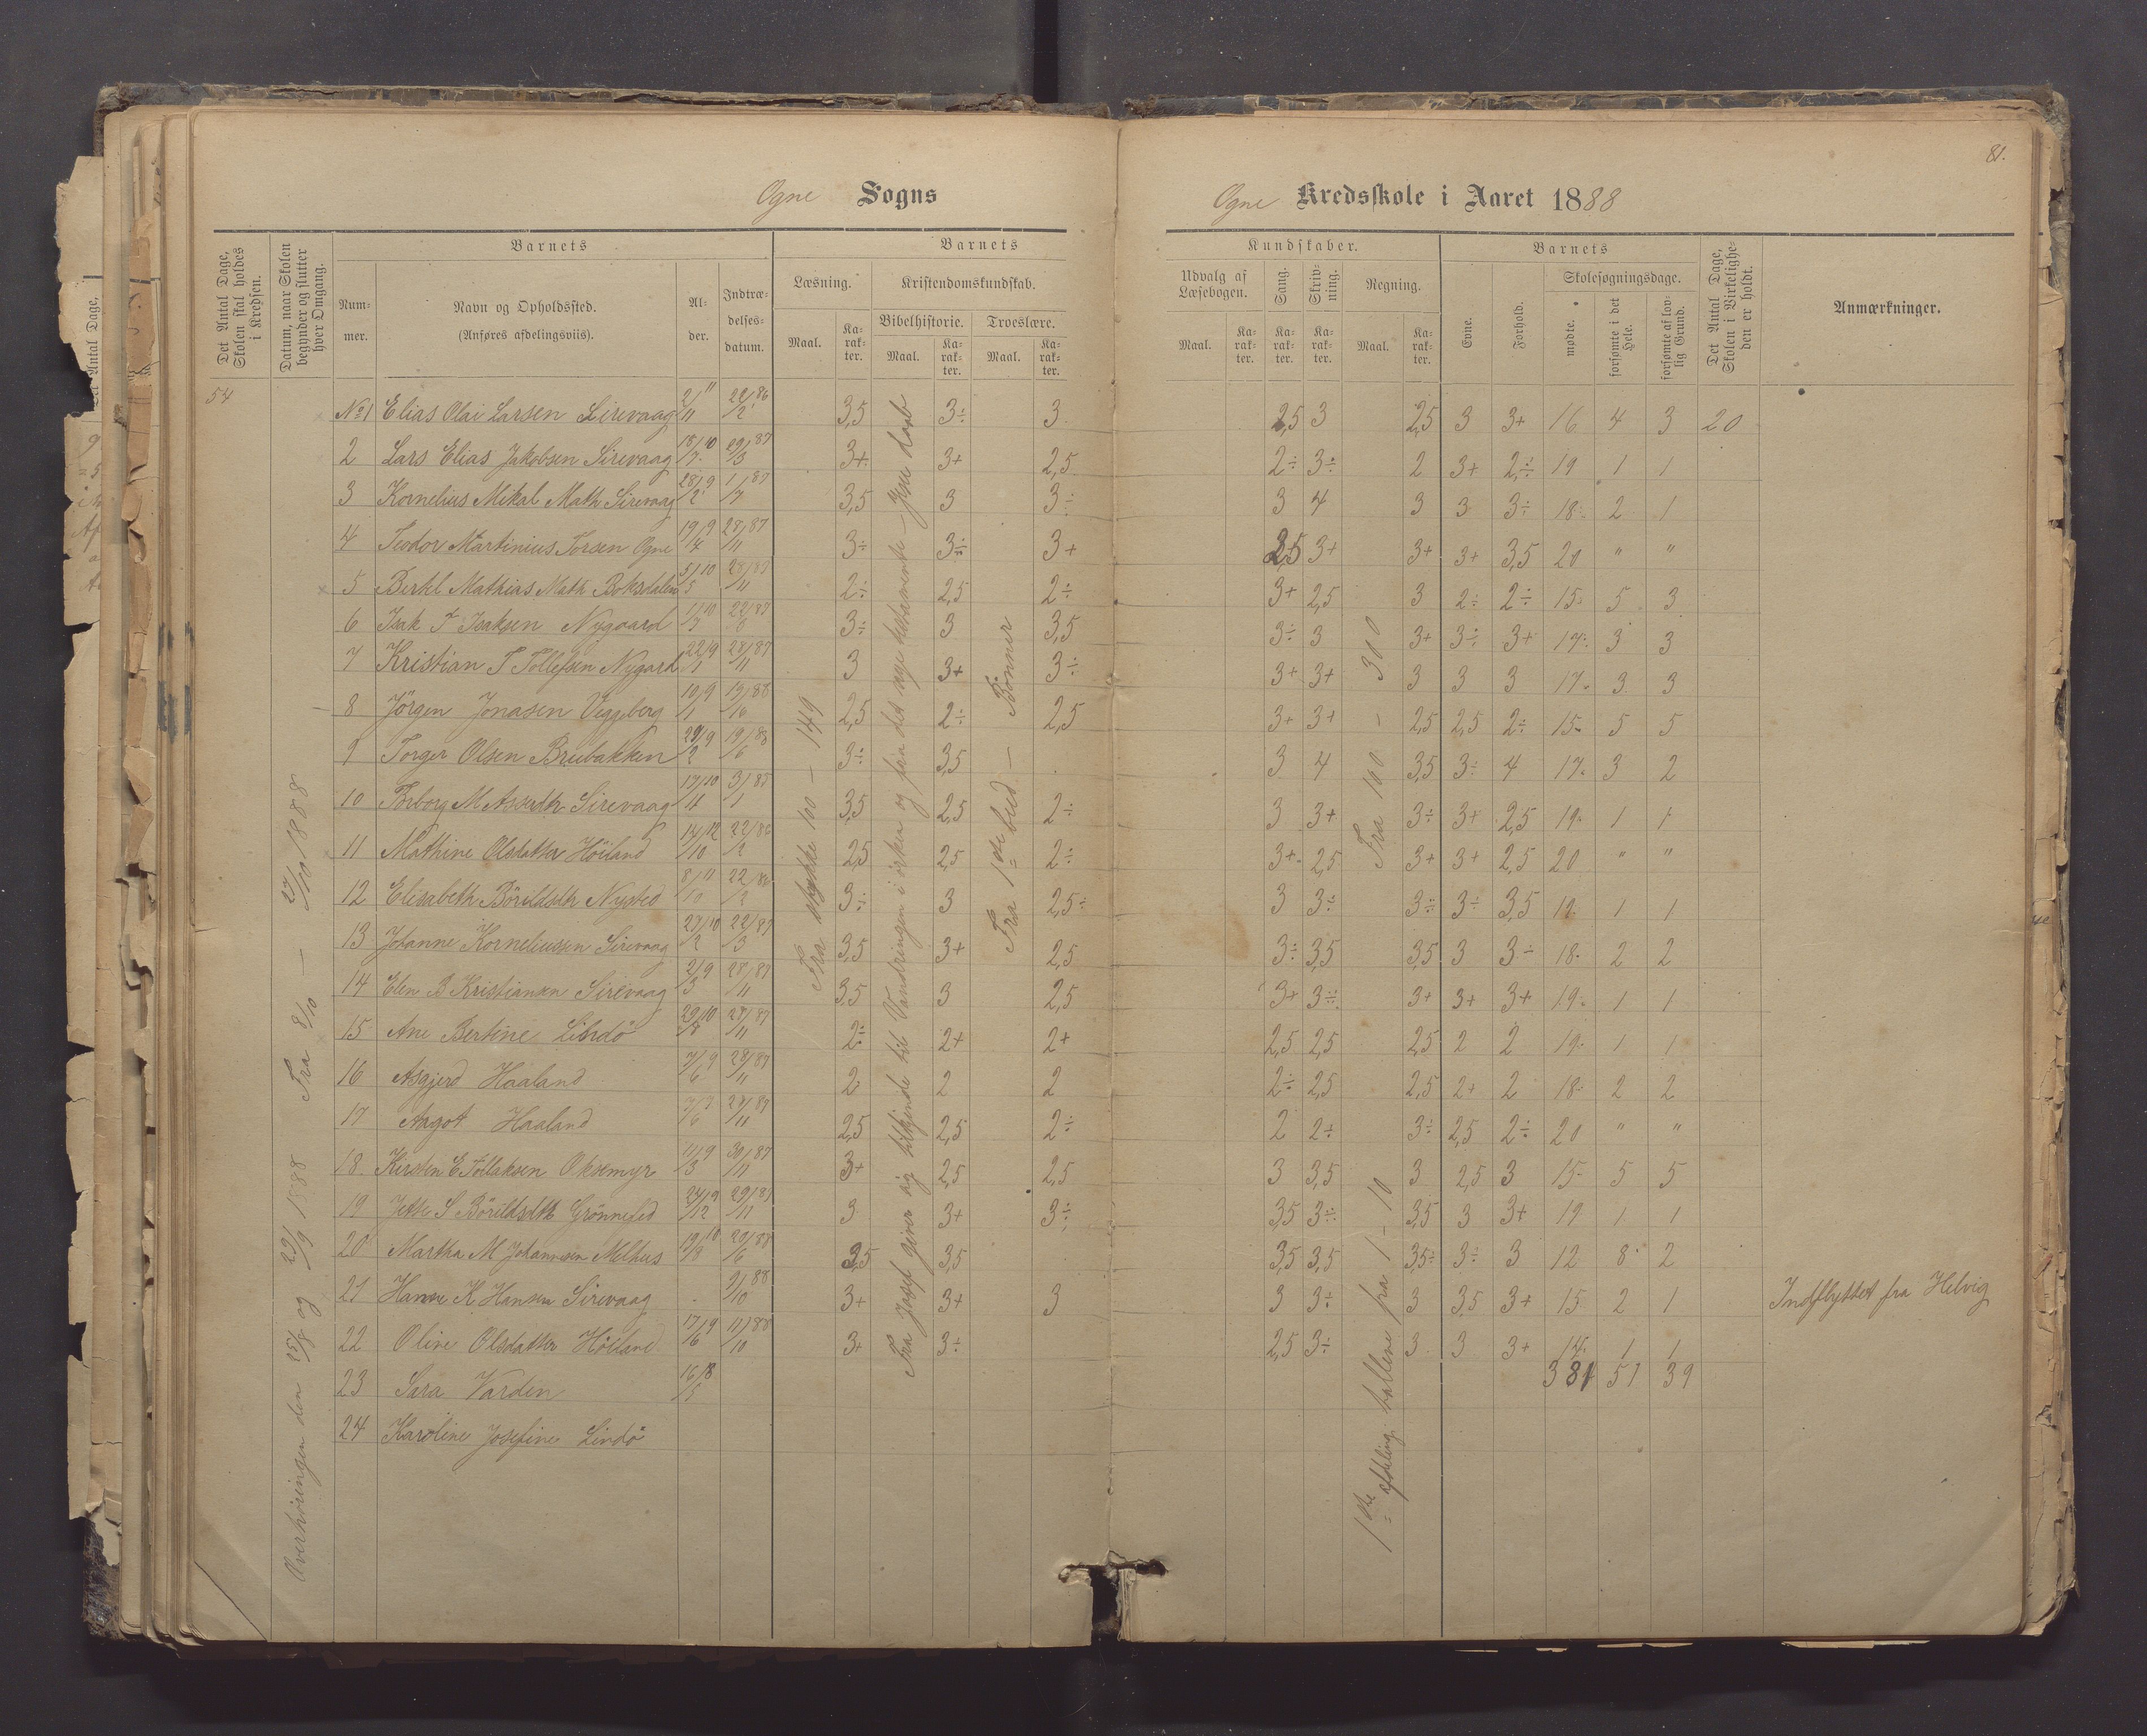 81.
Ogne Sogns
Ogne Kredsskole i Aaret 1888
Det Antal Dage, Skolen skal holdes i Kredsen.
Datum, naar Skolen begynder og slutter hver Omgang.
Barnets
Num-mer.
Navn og Opholdssted. (Anføres afdelingsviis).
Al-der.
Indtræ-delses-datum.
Barnets
Læsning.
Maal.
Ka-rak-ter.
Kristendomskundskab.
Bibelhistorie.
Maal.
Ka-rak-ter.
Troeslære.
Maal.
Ka-rak-ter.
Kundskaber.
Udvalg af Læsebogen.
Maal.
Ka-rak-ter.
Sang.
Ka-rak-ter.
Skriv-ning.
Ka-rak-ter.
Regning.
Maal.
Ka-rak-ter.
Barnets
Evne.
Forhold.
Skolesøgningsdage.
mødte.
forsømte i det Hele.
forsømte af lov-lig Grund.
Det Antal Dage, Skolen i Virkelighe-den er holdt.
Anmærkninger.
54
Overhøringen den 25/8 og 29/9 1888 Fra 8/10 — 27/10 1888
Fra stykke 100 – 149
Fra Josef giver sig tilkjende til Vandringen i ørken og fra det nye testamente – Jesu daab
Fra 1ste bud – Bønner
Fra 100 – 300
1ste afdeling tallene fra 1 – 10
№1 Elias Olai Larsen Sirevaag 2/11 11 22/2 86 3,5 3÷ 3 2,5 3 2,5 3 3+ 16 4 3 20
2 Lars Elias Jakobsen Sirevaag 18/7 10 29/3 87 3+ 3+ 2,5 2÷ 3÷ 2 3+ 2÷ 19 1 1
3 Kornelius Mikal Math Sirevaag 28/2 9 1/7 87 3,5 3 3÷ 3 4 3 3 3÷ 18 2 1
4 Teodor Martinius Torsen Ogne 19/4 9 28/11 87 3÷ 3÷ 3+ 2,5 3+ 3+ 3+ 3,5 20 " "
5 Berkl Mathias Math Boksdalen 5/5 10 28/11 87 2÷ 2,5 2÷ 3+ 2,5 3 2÷ 2÷ 15 5 3
6 Isak F Isaksen Nygaard 1/3 10 3÷ 3 3,5 3÷ 3 3+ 3÷ 3+ 17 3 3
7 Kristian T Tollefsen Nygard 22/1 9 28/11 87 3 3+ 3÷ 3+ 3+ 3 3 3 17 3 3
8 Jörgen Jonasen Veggeberg 10/1 9 19/6 88 2,5 2÷ 2,5 3+ 3+ 2,5 2,5 2÷ 15 5 5
9 Torger Olsen Breibakken 9 19/6 88 3÷ 3,5 3 4 3,5 3÷ 4 17 3 2
10 Torborg M Asserdtr Sirevaag 17/11 10 3/1 85 3,5 2,5 2÷ 3 3+ 3÷ 3+ 2,5 19 1 1
11 Mathine Olsdatter Höiland 14/10 12 22/2 86 2,5 2,5 2÷ 3+ 2,5 3+ 3+ 2,5 20 " "
12 Elisabeth Börildsdtr Nysted 8/10 11 22/2 86 3÷ 3 2,5÷ 3 3÷ 3÷ 3÷ 3,5 19 1 1
13 Johanne Korneliussen Sirevaag 27/2 10 22/3 87 3,5 3+ 2,5 3÷ 3,5 3,5 3 3÷ 18 2 2
14 Elen B Kristiansen Sirevaag 2/3 9 28/11 87 3,5 3 2,5 3+ 3÷ 3+ 3+ 3+ 19 1 1
15 Ane Bertine 29/8 10 28/11 87 2÷ 2+ 2+ 2,5 2,5 2,5 2 2 19 1 1
16 Asgjerd Haaland 7/6 9 28/11 87 2 2 2 2÷ 2,5 2,5 2+ 2 18 2 2
17 Aagot Haaland 7/6 9 28/11 87 2,5 2,5 2÷ 2 2+ 3÷ 2,5 2÷ 20 " "
18 Kirsten E Tollaksen Oksemyr 11/3 9 30/11 87 3+ 2,5 2,5 3 3,5 3 2,5 3 15 5 5
19 Jette S Börildsdtr Grönnesled 24/12 9 29/11 87 3 3+ 3÷ 3,5 3÷ 3,5 3 3+ 19 1 1
20 Martha M Johannesen Melhus 19/8 10 20/6 88 3,5 3,5 3,5 3,5 3,5÷ 3÷ 3 12 8 2
21 Hanne K Hansen Sirevaag 9/10 88 3+ 3+ 3 3 3÷ 3 3,5 3+ 15 2 1 Indflyttet fra Helvig
22 Oline Olsdatter Höiland 17/6 9 11/10 88 3+ 3÷ 2,5 3÷ 3 3 3+ 14 1 1
381 51 39
23 Sara Varden 16/5 8
24 Karoline Josefine Lindö